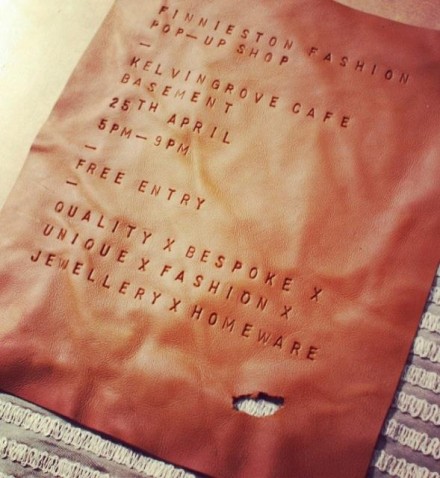 FINNIESTON FASHION
POP-UP SHOP
—
KELVINGROVE CAFE
BASEMENT
25TH APRIL
5PM—9PM
—
FREE ENTRY
—
QUALITY X BESPOKE X
UNIQUE X FASHION X
JEWELLERY X HOMEWARE